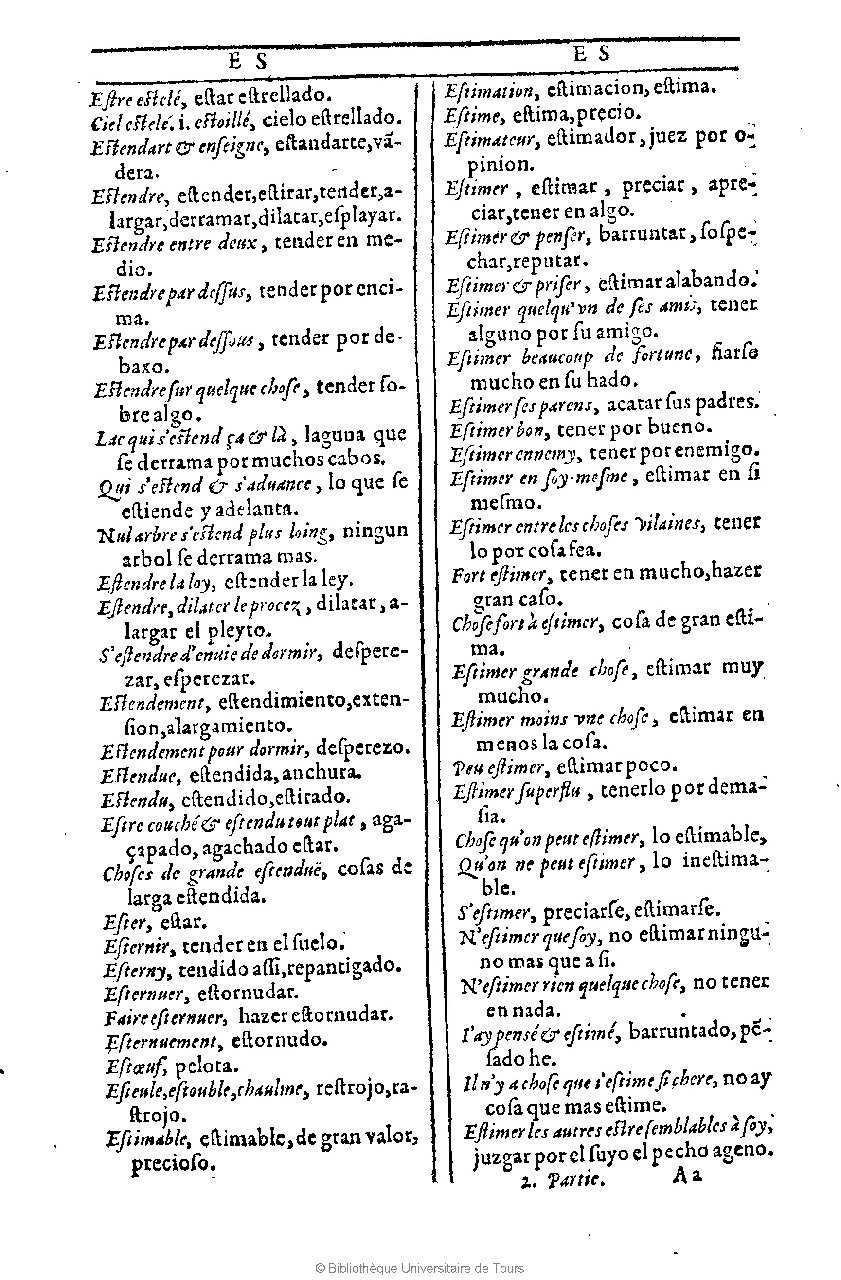 E S
Eſtre eſtelé, eſtar eſtrellado.
Ciel eſtelé. i. eſtoillé, cielo eſtrellado.
Eſtendart & enſeigne, eſtandarte, vã-
dera.
Eſtendre, eſtender, eſtirar, tender, a-
largar, derramar, dilatar, eſplayar.
Eſtendre entre deux, tender en me-
dio.
Eſtendre par deſſus, tender por enci-
ma.
Eſtendre par deſſous, tender por de-
baxo.
Eſtendre ſur quelque choſe, tender ſo-
bre algo.
Lac qui s'eſtend ça & là, laguna que
ſe derrama por muchos cabos.
Qui s'eſtend & s'aduance, lo que ſe
eſtiende y adelanta.
Nul arbre s'eſtend plus loing, ningun
arbol ſe derrama mas.
Eſtendre la loy, eſtender la ley.
Eſtendre, dilater le procez, dilatar, a-
largar el pleyto.
S'eſtendre d'enuie de dormir, deſpere-
zar, eſperezar.
Eſtendement, eſtendimiento, exten-
ſion, alargamiento.
Eſtendement pour dormir, deſperezo.
Eſtendue, eſtendida, anchura.
Eſtendu, eſtendido, eſtirado.
Eſtre couché & eſtendu tout plat, aga-
çapado, agachado eſtar.
Choſes de grande eſtenduë, coſas de
larga eſtendida.
Eſter, eſtar.
Eſternir, tender en el ſuelo.
Eſterny, tendido aſſi, repantigado.
Eſternuer, eſtornudar.
Faire eſternuer, hazer eſtornudar.
Eſternuement, eſtornudo.
Eſtœuf, pelota.
Eſteule, eſtouble, chaulme, reſtrojo, ra-
ſtrojo.
Eſtimable, eſtimable, de gran valor,
precioſo.
E S
Eſtimation, eſtimacion, eſtima.
Eſtime, eſtima, precio.
Eſtimateur, eſtimador, juez por o-
pinion.
Eſtimer, eſtimar, preciar, apre-
ciar, tener en algo.
Eſtimer & penſer, barruntar, ſoſpe-
char, reputar.
Eſtimer & priſer, eſtimar alabando.
Eſtimer quelqu'vn de ſes amis, tener
alguno por ſu amigo.
Eſtimer beaucoup de fortune, fiarſe
mucho en ſu hado.
Eſtimer ſes parens, acatar ſus padres.
Eſtimer bon, tener por bueno.
Eſtimer ennemy, tener por enemigo.
Eſtimer en ſoy-meſme, eſtimar en ſi
meſmo.
Eſtimer entre les choſes vilaines, tener
lo por coſa fea.
Fort eſtimer, tener en mucho, hazer
gran caſo.
Choſe fort à eſtimer, coſa de gran eſti-
ma.
Eſtimer grande choſe, eſtimar muy
mucho.
Eſtimer moins vne choſe, eſtimar en
menos la coſa.
Peu eſtimer, eſtimar poco.
Eſtimer ſuperflu, tenerlo por dema-
ſia.
Choſe qu'on peut eſtimer, lo eſtimable,
Qu'on ne peut eſtimer, lo ineſtima-
ble.
S'eſtimer, preciarſe, eſtimarſe.
N'eſtimer que ſoy, no eſtimar ningu-
no mas que a ſi.
N'eſtimer rien quelque choſe, no tener
en nada.
I'ay penſé & eſtimé, barruntado, pẽ-
ſado he.
Il n'y a choſe que i'eſtime ſi chere, no ay
coſa que mas eſtime.
Eſtimer les autres eſtre ſemblables à ſoy,
juzgar por el ſuyo el pecho ageno.
2. Partie. A a
© Bibliothèque Universitaire de Tours